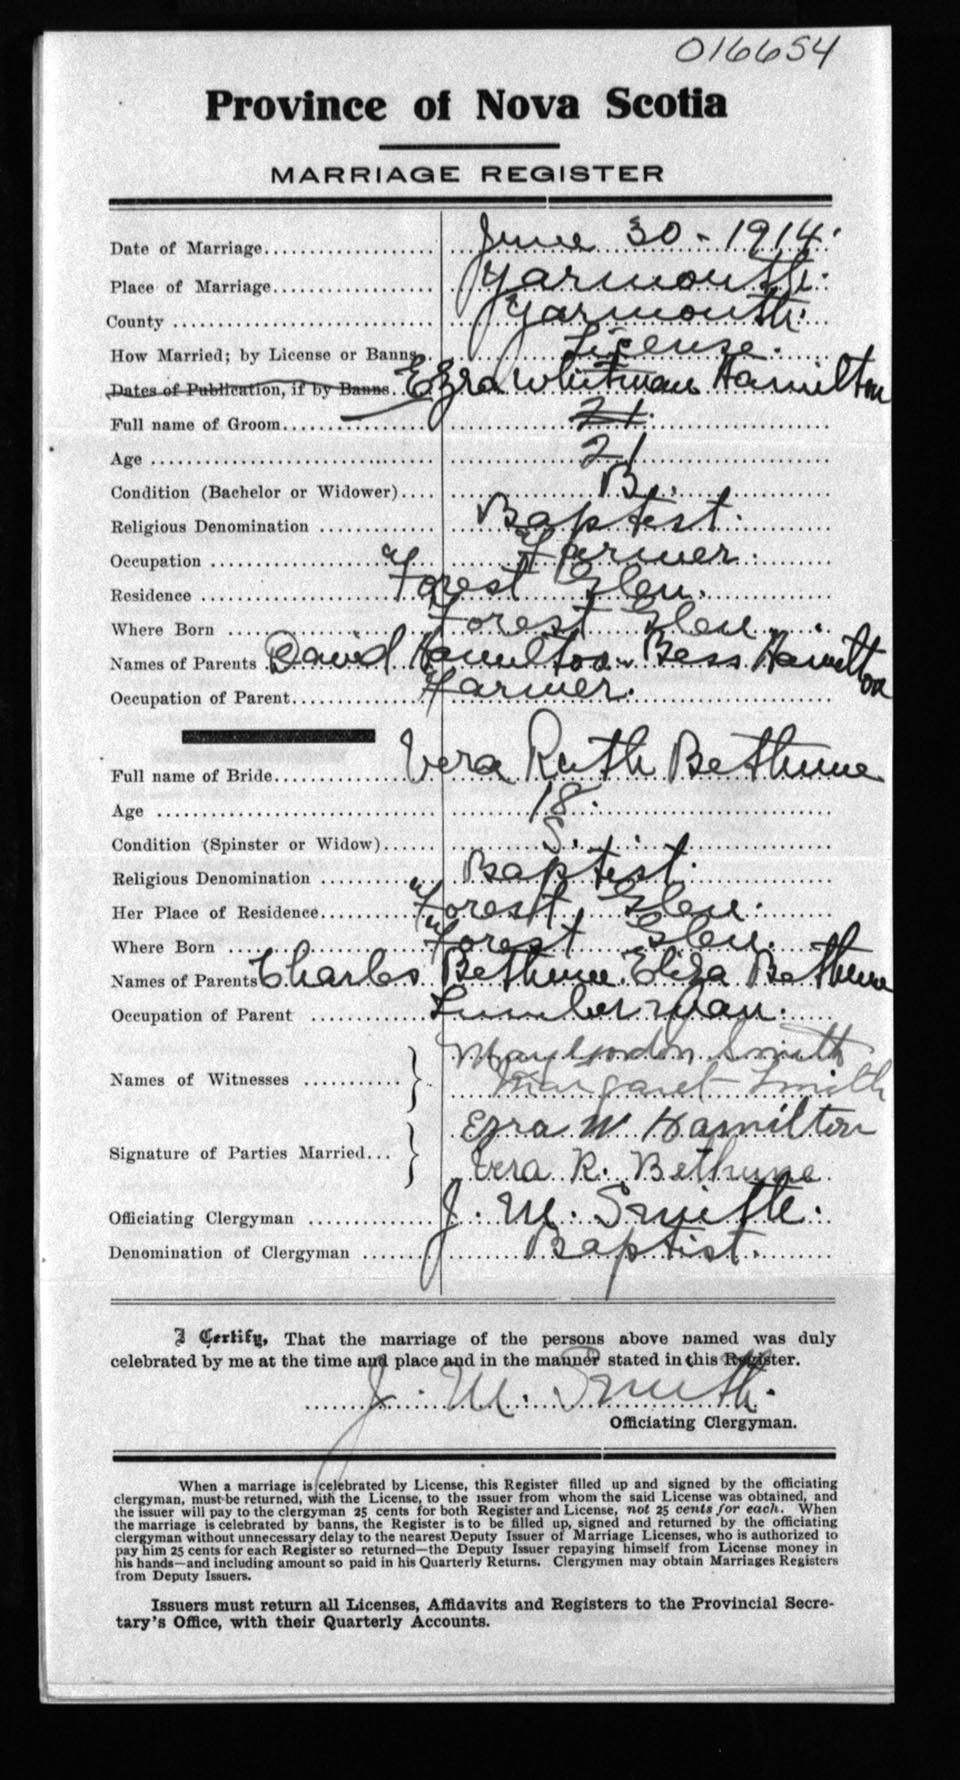 016654
Province of Nova Scotia
MARRIAGE REGISTER
Date of Marriage.................... June 30 - 1914.
Place of Marriage................... Yarmouth.
County ................................ Yarmouth.
How Married; by License or Banns... License.
Dates of Publication, if by Banns. Ezra Whitman Hamilton
Full name of Groom.................. 21.
Age ................................... 21
Condition (Bachelor or Widower).... B.
Religious Denomination .............. Baptist.
Occupation ........................... Farmer.
Residence ............................ Forest Glen.
Where Born .......................... Forest Glen.
Names of Parents David Hamilton. Bess Hamilton
Occupation of Parent................. Farmer.
Full name of Bride................... Vera Ruth Bethune
Age ................................... 18.
Condition (Spinster or Widow)...... S.
Religious Denomination .............. Baptist.
Her Place of Residence.............. Forest Glen.
Where Born .......................... Forest Glen.
Names of Parents Charles Bethune. Eliza Bethune
Occupation of Parent ............... Lumberman.
May Gordon Smith
Names of Witnesses ........... }
Margaret Smith
Ezra W Hamilton
Signature of Parties Married... }
Vera R. Bethune
Officiating Clergyman ............... J. M. Smith.
Denomination of Clergyman ........ Baptist.
I Certify, That the marriage of the persons above named was duly
celebrated by me at the time and place and in the manner stated in this Register.
J. M. Smith.
Officiating Clergyman.
When a marriage is celebrated by License, this Register filled up and signed by the officiating
clergyman, must be returned, with the License, to the issuer from whom the said License was obtained, and
the issuer will pay to the clergyman 25 cents for both Register and License, not 25 cents for each. When
the marriage is celebrated by banns, the Register is to be filled up, signed and returned by the officiating
clergyman without unnecessary delay to the nearest Deputy Issuer of Marriage Licenses, who is authorized to
pay him 25 cents for each Register so returned—the Deputy Issuer repaying himself from License money in
his hands—and including amount so paid in his Quarterly Returns. Clergymen may obtain Marriages Registers
from Deputy Issuers.
Issuers must return all Licenses, Affidavits and Registers to the Provincial Secre-
tary's Office, with their Quarterly Accounts.